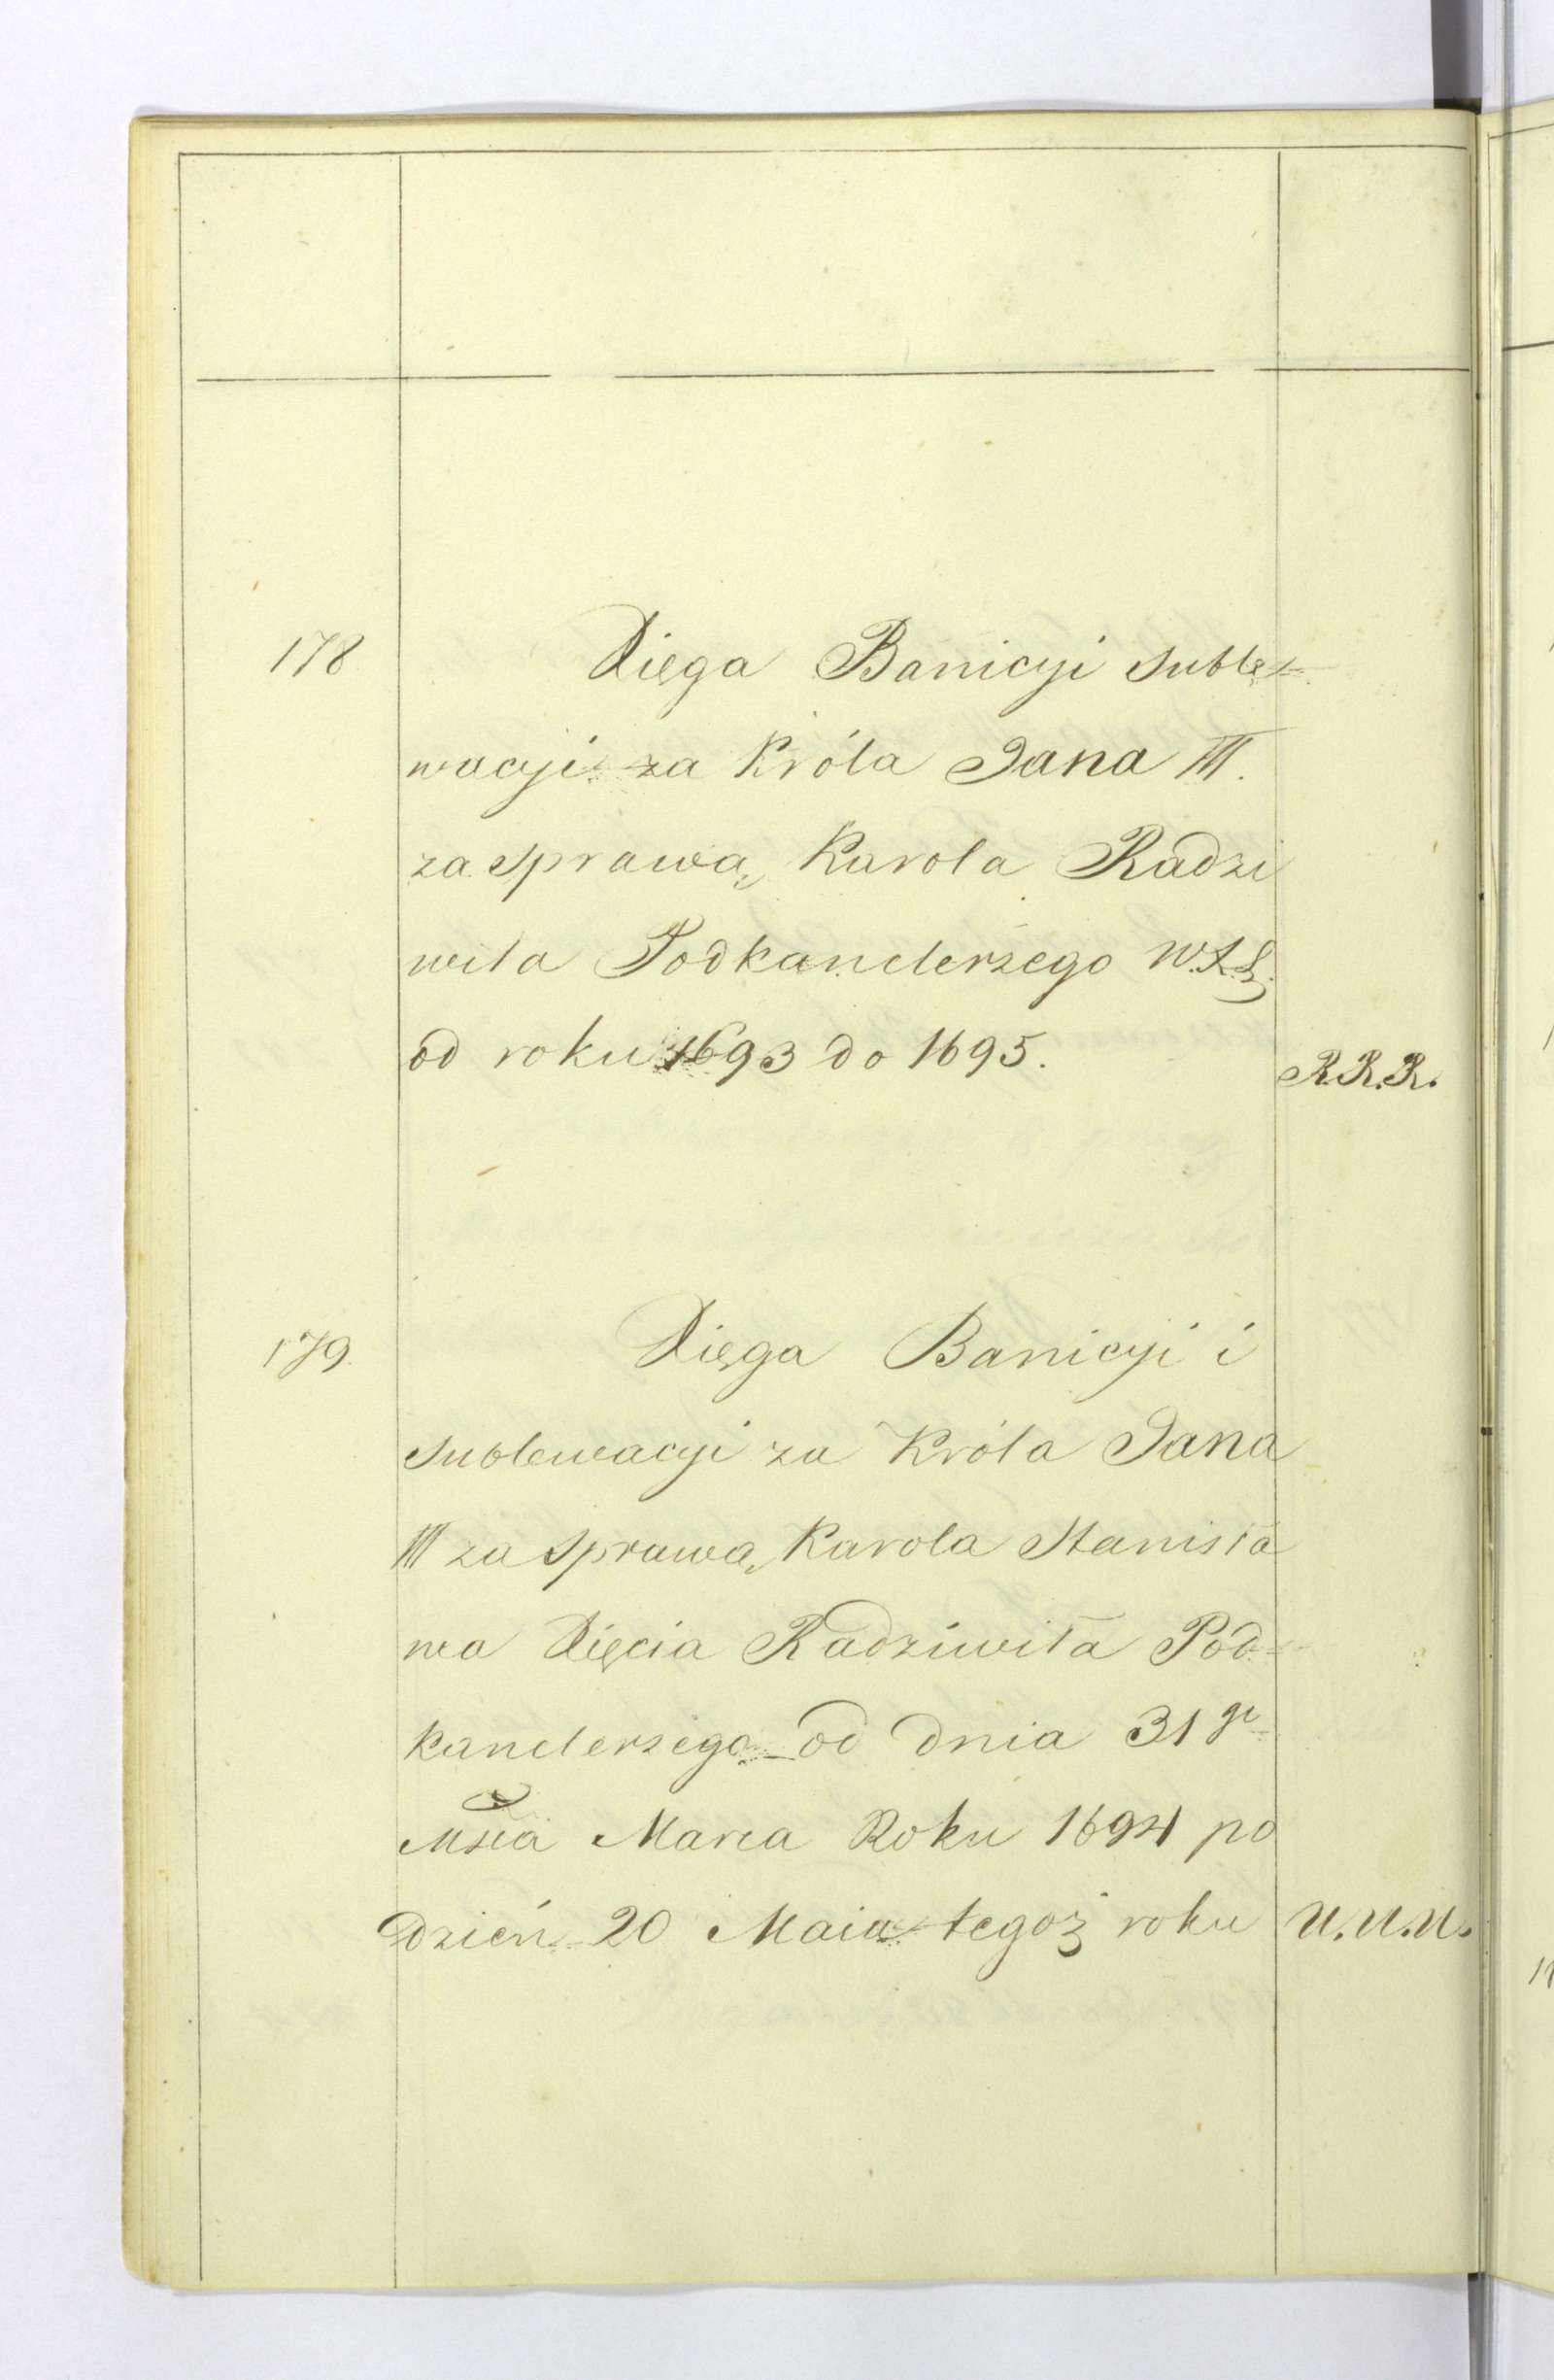 178 Xięga Banicyi suble-
wacyi za Króla Jana III.
za sprawą Karola Radzi
wiła Podkanclerzego W.X.L.
od roku 1693 do 1695. R.R.R.
179. Xięga Banicyi i
sublewacyi za Króla Jana
III za sprawą Karola Stanisła
wa Xięcia Radziwiła Pod-
kanclerzego od dnia 31 go
Msca Marca Roku 1694 po
dzień 20 Maia tegoż roku U.U.U.